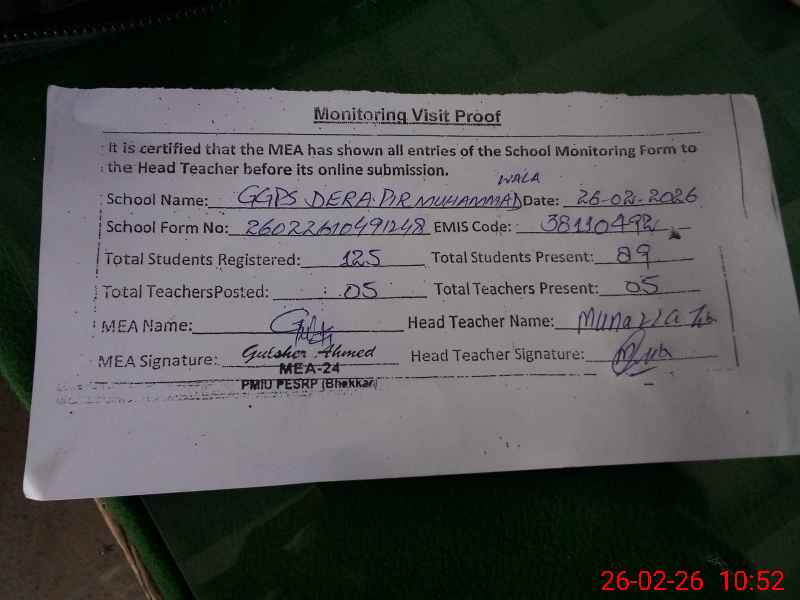 Monitoring Visit Proof
It is certified that the MEA has shown all entries of the School Monitoring Form to
the Head Teacher before its online submission.
WALA
School Name: GGPS DERA PIR MUHAMMAD Date: 26-02-2026
School Form No: 26022610491248 EMIS Code: 38110492
Total Students Registered: 125 Total Students Present: 89
Total TeachersPosted: 05 Total Teachers Present: 05
MEA Name: Head Teacher Name: Munazza
MEA Signature: Gulsher Ahmed Head Teacher Signature:
MEA-24
PMIU PESRP (Bhakkar)
26-02-26 10:52